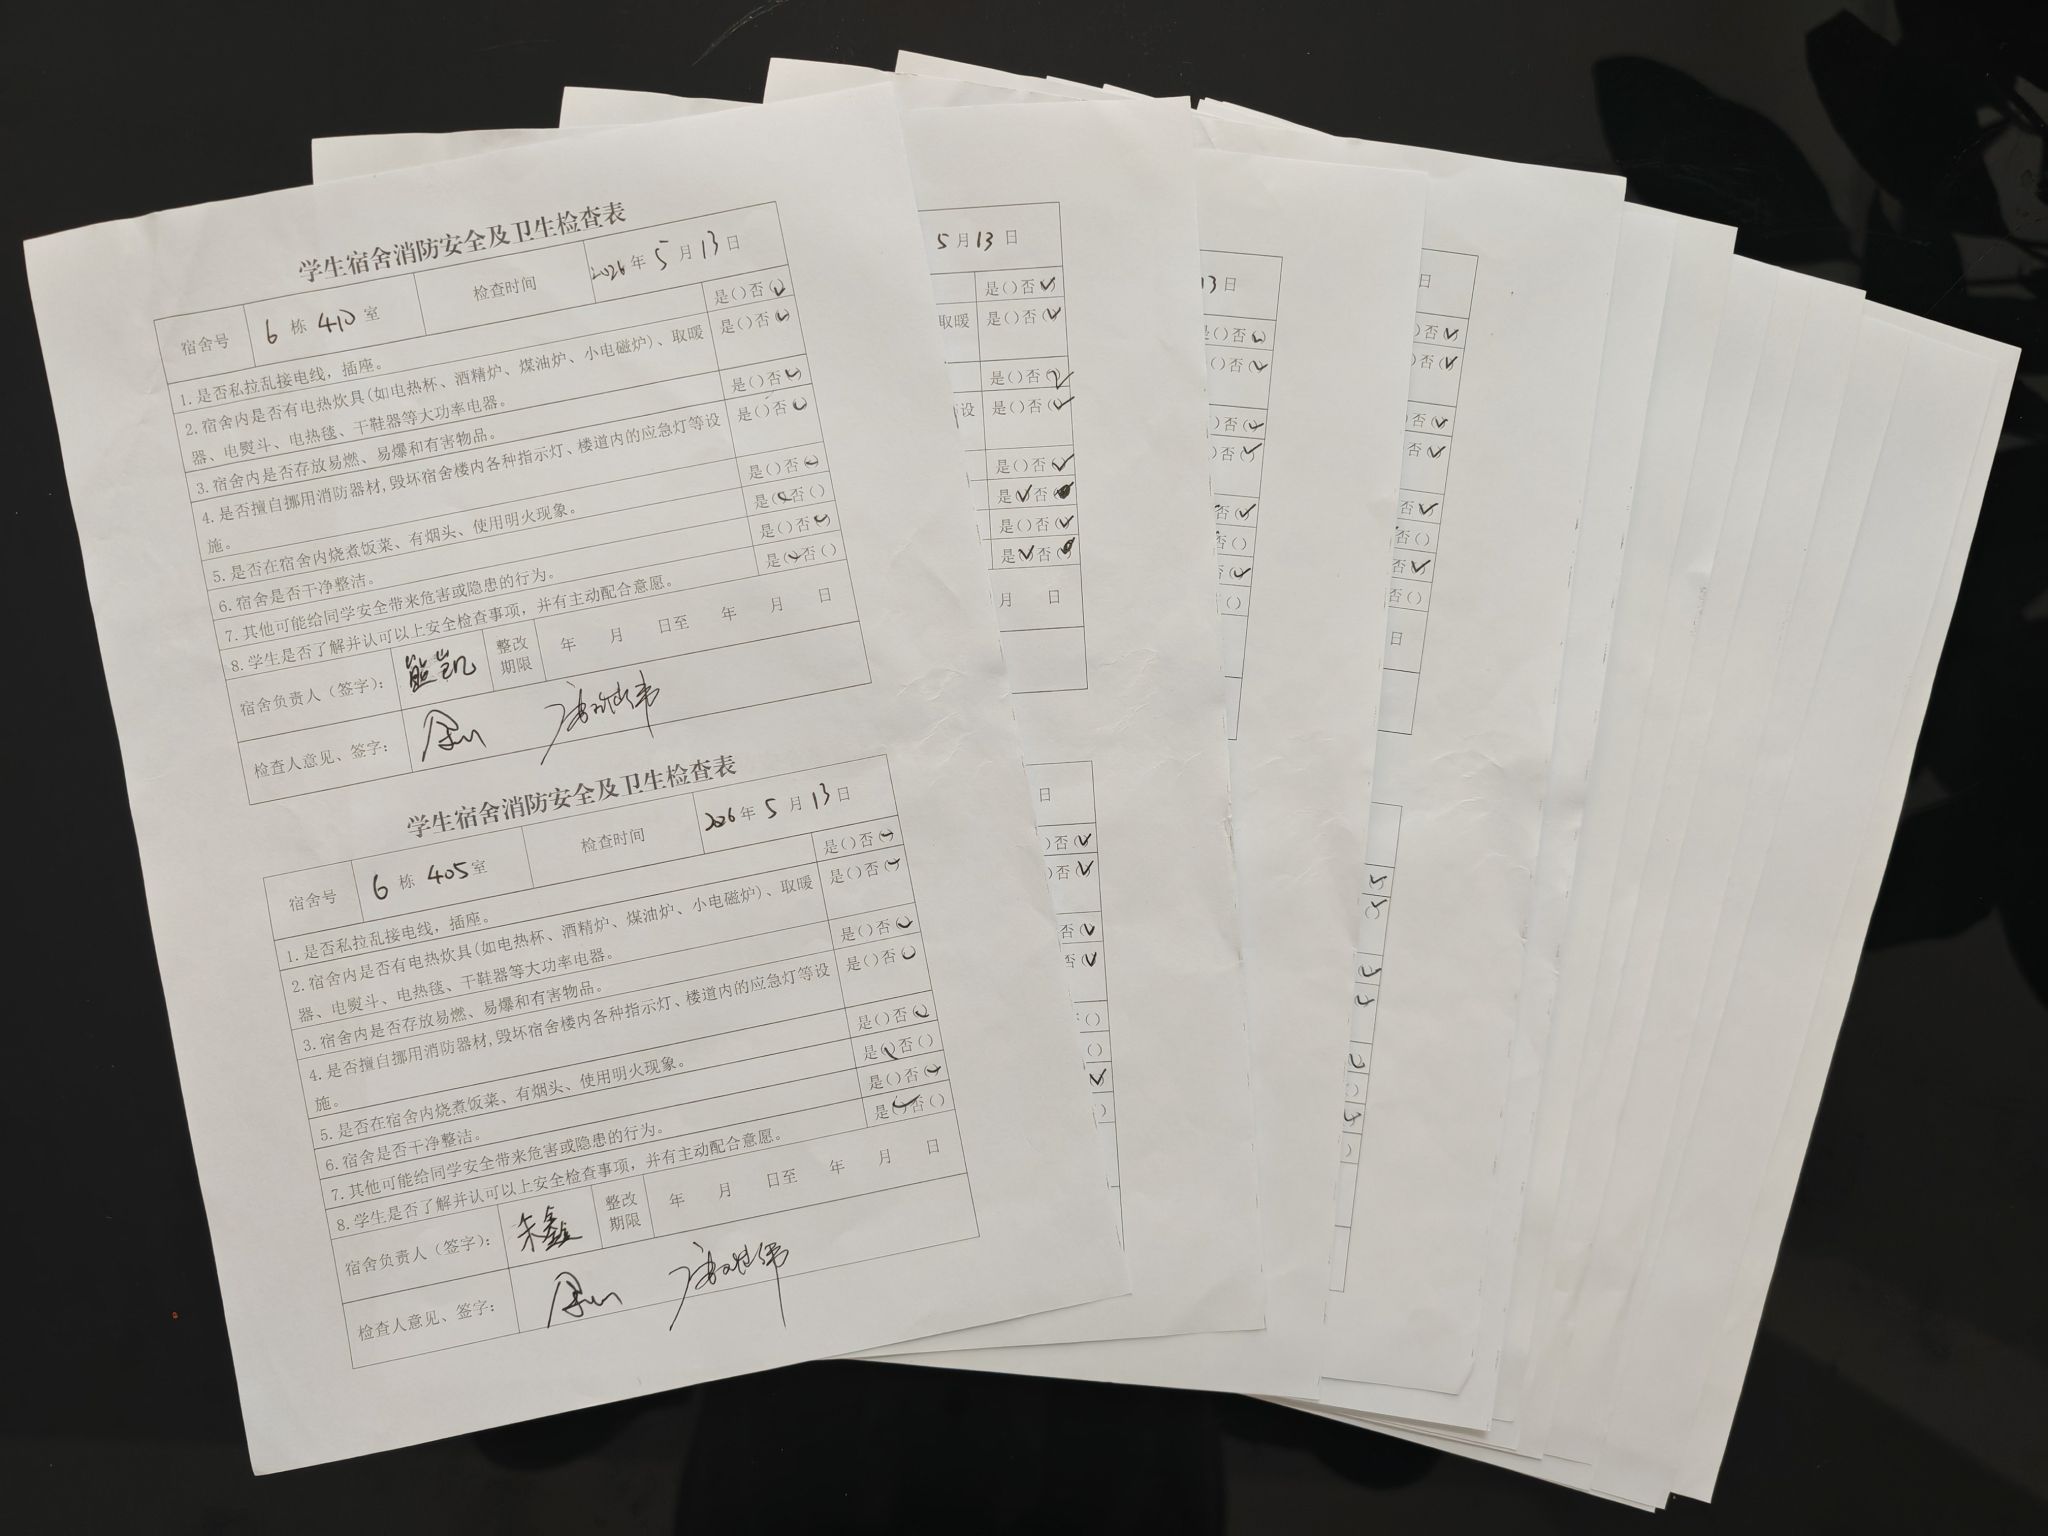 学生宿舍消防安全及卫生检查表
宿舍号 6 栋 410 室 检查时间 2026 年 5 月 13 日
1.是否私拉乱接电线，插座。 是()否(✓)
2.宿舍内是否有电热炊具(如电热杯、酒精炉、煤油炉、小电磁炉)、取暖 是()否(✓)
器、电熨斗、电热毯、干鞋器等大功率电器。
3.宿舍内是否存放易燃、易爆和有害物品。 是()否(✓)
4.是否擅自挪用消防器材,毁坏宿舍楼内各种指示灯、楼道内的应急灯等设 是()否(✓)
施。
5.是否在宿舍内烧煮饭菜、有烟头、使用明火现象。 是()否(✓)
6.宿舍是否干净整洁。 是(✓)否()
7.其他可能给同学安全带来危害或隐患的行为。 是()否(✓)
8.学生是否了解并认可以上安全检查事项，并有主动配合意愿。 是(✓)否()
宿舍负责人（签字）： 熊凯 整改期限 年 月 日至 年 月 日
检查人意见、签字：
学生宿舍消防安全及卫生检查表
宿舍号 6 栋 405 室 检查时间 2026 年 5 月 13 日
1.是否私拉乱接电线，插座。 是()否(✓)
2.宿舍内是否有电热炊具(如电热杯、酒精炉、煤油炉、小电磁炉)、取暖 是()否(✓)
器、电熨斗、电热毯、干鞋器等大功率电器。
3.宿舍内是否存放易燃、易爆和有害物品。 是()否(✓)
4.是否擅自挪用消防器材,毁坏宿舍楼内各种指示灯、楼道内的应急灯等设 是()否(✓)
施。
5.是否在宿舍内烧煮饭菜、有烟头、使用明火现象。 是()否(✓)
6.宿舍是否干净整洁。 是(✓)否()
7.其他可能给同学安全带来危害或隐患的行为。 是()否(✓)
8.学生是否了解并认可以上安全检查事项，并有主动配合意愿。 是(✓)否()
宿舍负责人（签字）： 朱鑫 整改期限 年 月 日至 年 月 日
检查人意见、签字：
5 月 13 日
是()否(✓)
取暖 是()否(✓)
是()否(✓)
设 是()否(✓)
是()否(✓)
是(✓)否
是()否(✓)
是(✓)否
月 日
日
)否(✓)
)否(✓)
否(✓)
否(✓)
()
()
✓
)
13 日
是()否(✓)
()否(✓)
()否(✓)
)否(✓)
否(✓)
否()
否(✓)
()
日
()否(✓)
)否(✓)
否(✓)
否(✓)
否(✓)
否()
否(✓)
否()
日